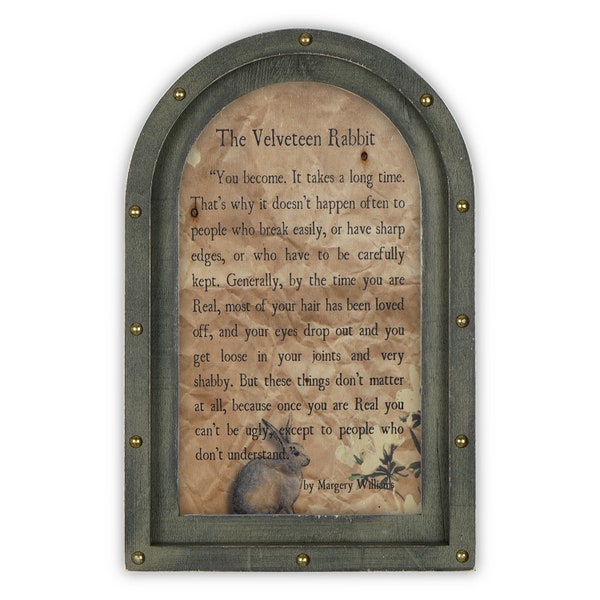 The Velveteen Rabbit
“You become. It takes a long time.
That’s why it doesn’t happen often to
people who break easily, or have sharp
edges, or who have to be carefully
kept. Generally, by the time you are
Real, most of your hair has been loved
off, and your eyes drop out and you
get loose in your joints and very
shabby. But these things don’t matter
at all, because once you are Real you
can’t be ugly, except to people who
don’t understand.”
by Margery Williams